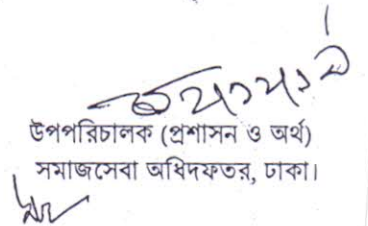 উপপরিচালক (প্রশাসন ও অর্থ)
সমাজসেবা অধিদফতর, ঢাকা।